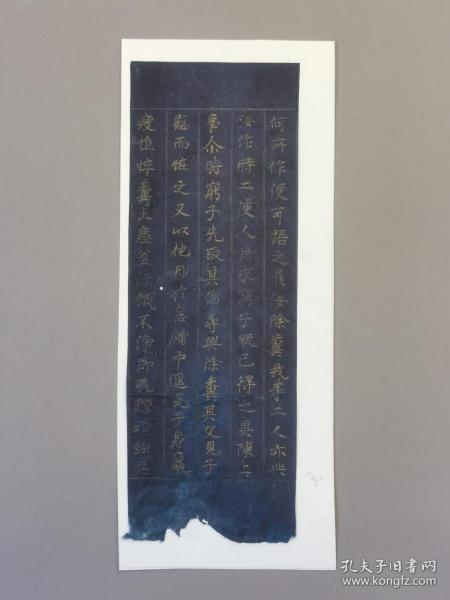 何所作便可語之雇汝除糞我等二人亦共
汝作時二使人即求窮子既已得之具陳上
事尒時窮子先取其價尋與除糞其父見子
愍而恠之又以他日於窓牖中遥見子身羸
瘦憔悴糞土塵坌污穢不淨即脱瓔珞細
孔夫子旧书网
www.kongfz.com